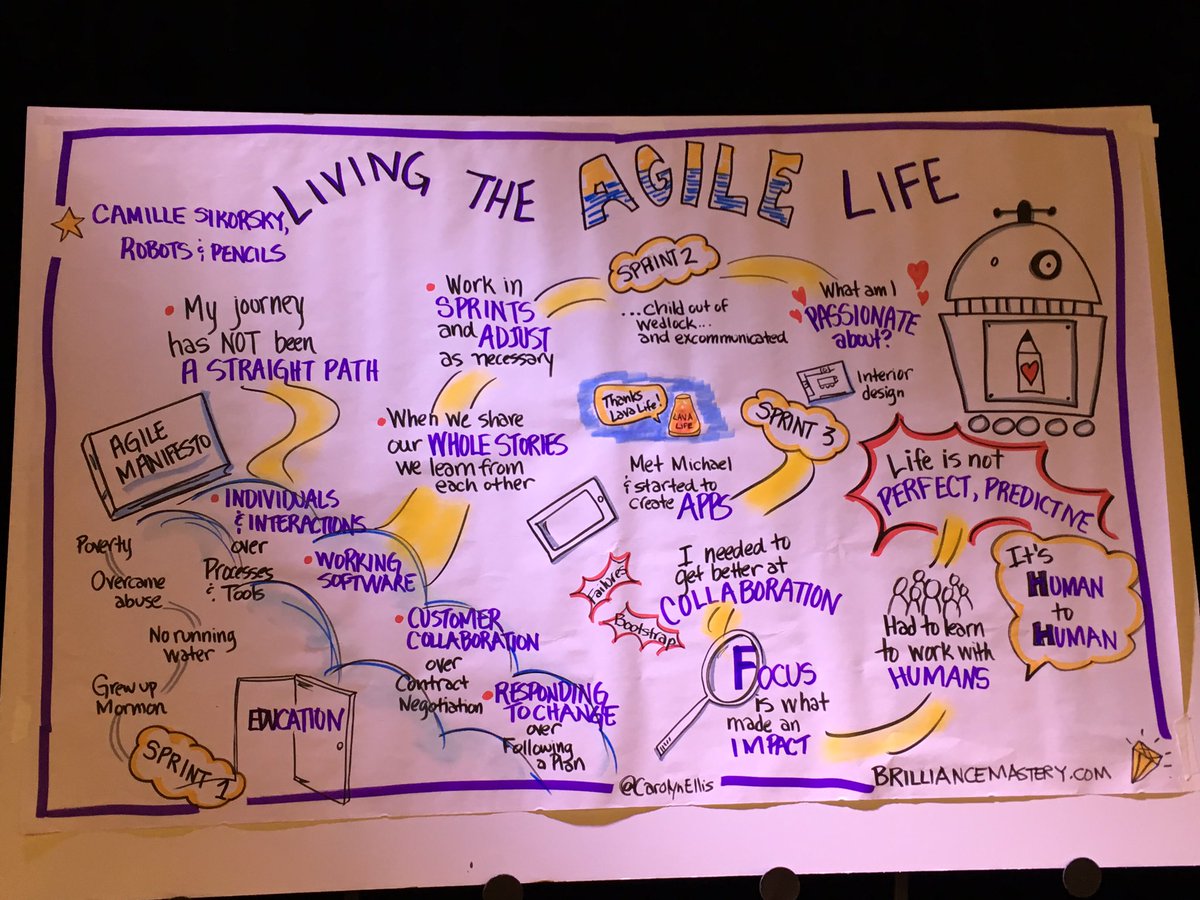 LIVING THE AGILE LIFE
CAMILLE SIKORSKY,
ROBOTS & PENCILS
• My journey
has NOT been
A STRAIGHT PATH
AGILE
MANIFESTO
• INDIVIDUALS
& INTERACTIONS
over
Processes
& Tools
• WORKING
SOFTWARE
• CUSTOMER
COLLABORATION
over
Contract
Negotiation
• RESPONDING
TO CHANGE
over
Following
a Plan
Poverty
Overcame
abuse
No running
water
Grew up
Mormon
SPRINT 1
EDUCATION
• Work in
SPRINTS
and ADJUST
as necessary
• When we share
our WHOLE STORIES
we learn from
each other
SPRINT 2
...child out of
wedlock...
and excommunicated
What am I
PASSIONATE
about?
Interior
design
Thanks
Lava Life!
LAVA
LIFE
SPRINT 3
Met Michael
& started to
create APPS
Failures
Bootstrap
I needed to
get better at
COLLABORATION
FOCUS
is what
made an
IMPACT
Life is not
PERFECT, PREDICTIVE
Had to learn
to work with
HUMANS
It's
HUMAN
to
HUMAN
@CarolynEllis
BRILLIANCEMASTERY.COM